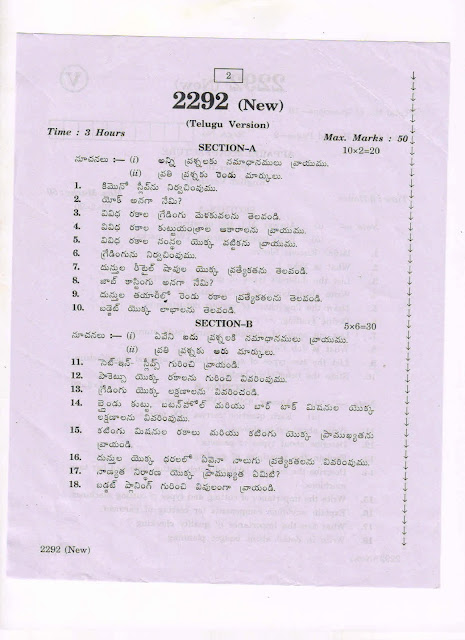 2
2292 (New)
(Telugu Version)
Time : 3 Hours Max. Marks : 50
SECTION-A 10×2=20
సూచనలు :— (i) అన్ని ప్రశ్నలకు సమాధానములు వ్రాయుము.
(ii) ప్రతి ప్రశ్నకు రెండు మార్కులు.
1. కిమొనో స్లీవ్‌ను నిర్వచింపుము.
2. యోక్ అనగా నేమి?
3. వివిధ రకాల గ్రేడింగు మెళకువలను తెలపండి.
4. వివిధ రకాల కుట్టుయంత్రాల ఆకారాలను వ్రాయుము.
5. వివిధ రకాల సంస్థల యొక్క పట్టికను వ్రాయుము.
6. గ్రేడింగును నిర్వచింపుము.
7. దుస్తుల రీటైల్ షాపుల యొక్క ప్రత్యేకతను తెలపండి.
8. జాబ్ కాస్టింగు అనగా నేమి?
9. దుస్తుల తయారీలో రెండు రకాల ప్రత్యేకతలను తెలపండి.
10. బడ్జెట్ యొక్క లాభాలను తెలపండి.
SECTION-B 5×6=30
సూచనలు :— (i) ఏవేని ఐదు ప్రశ్నలకి సమాధానములు వ్రాయుము.
(ii) ప్రతి ప్రశ్నకు ఆరు మార్కులు.
11. 'సెట్-ఇన్' స్లీవ్స్ గురించి వ్రాయండి.
12. పాకెట్సు యొక్క రకాలను గురించి వివరింపుము.
13. గ్రేడింగు యొక్క లక్షణాలను వివరించండి.
14. బ్లైండు కుట్టు, బటన్‌హోల్ మరియు బార్ టాక్ మిషనుల యొక్క
లక్షణాలను వివరింపుము.
15. కటింగు మిషనుల రకాలు మరియు కటింగు యొక్క ప్రాముఖ్యతను
వ్రాయండి.
16. దుస్తుల యొక్క ధరలలో ఏవైనా నాలుగు ప్రత్యేకతలను వివరింపుము.
17. నాణ్యత నిర్ధారణ యొక్క ప్రాముఖ్యత ఏమిటి?
18. బడ్జెట్ ప్లానింగ్ గురించి విపులంగా వ్రాయండి.
2292 (New)